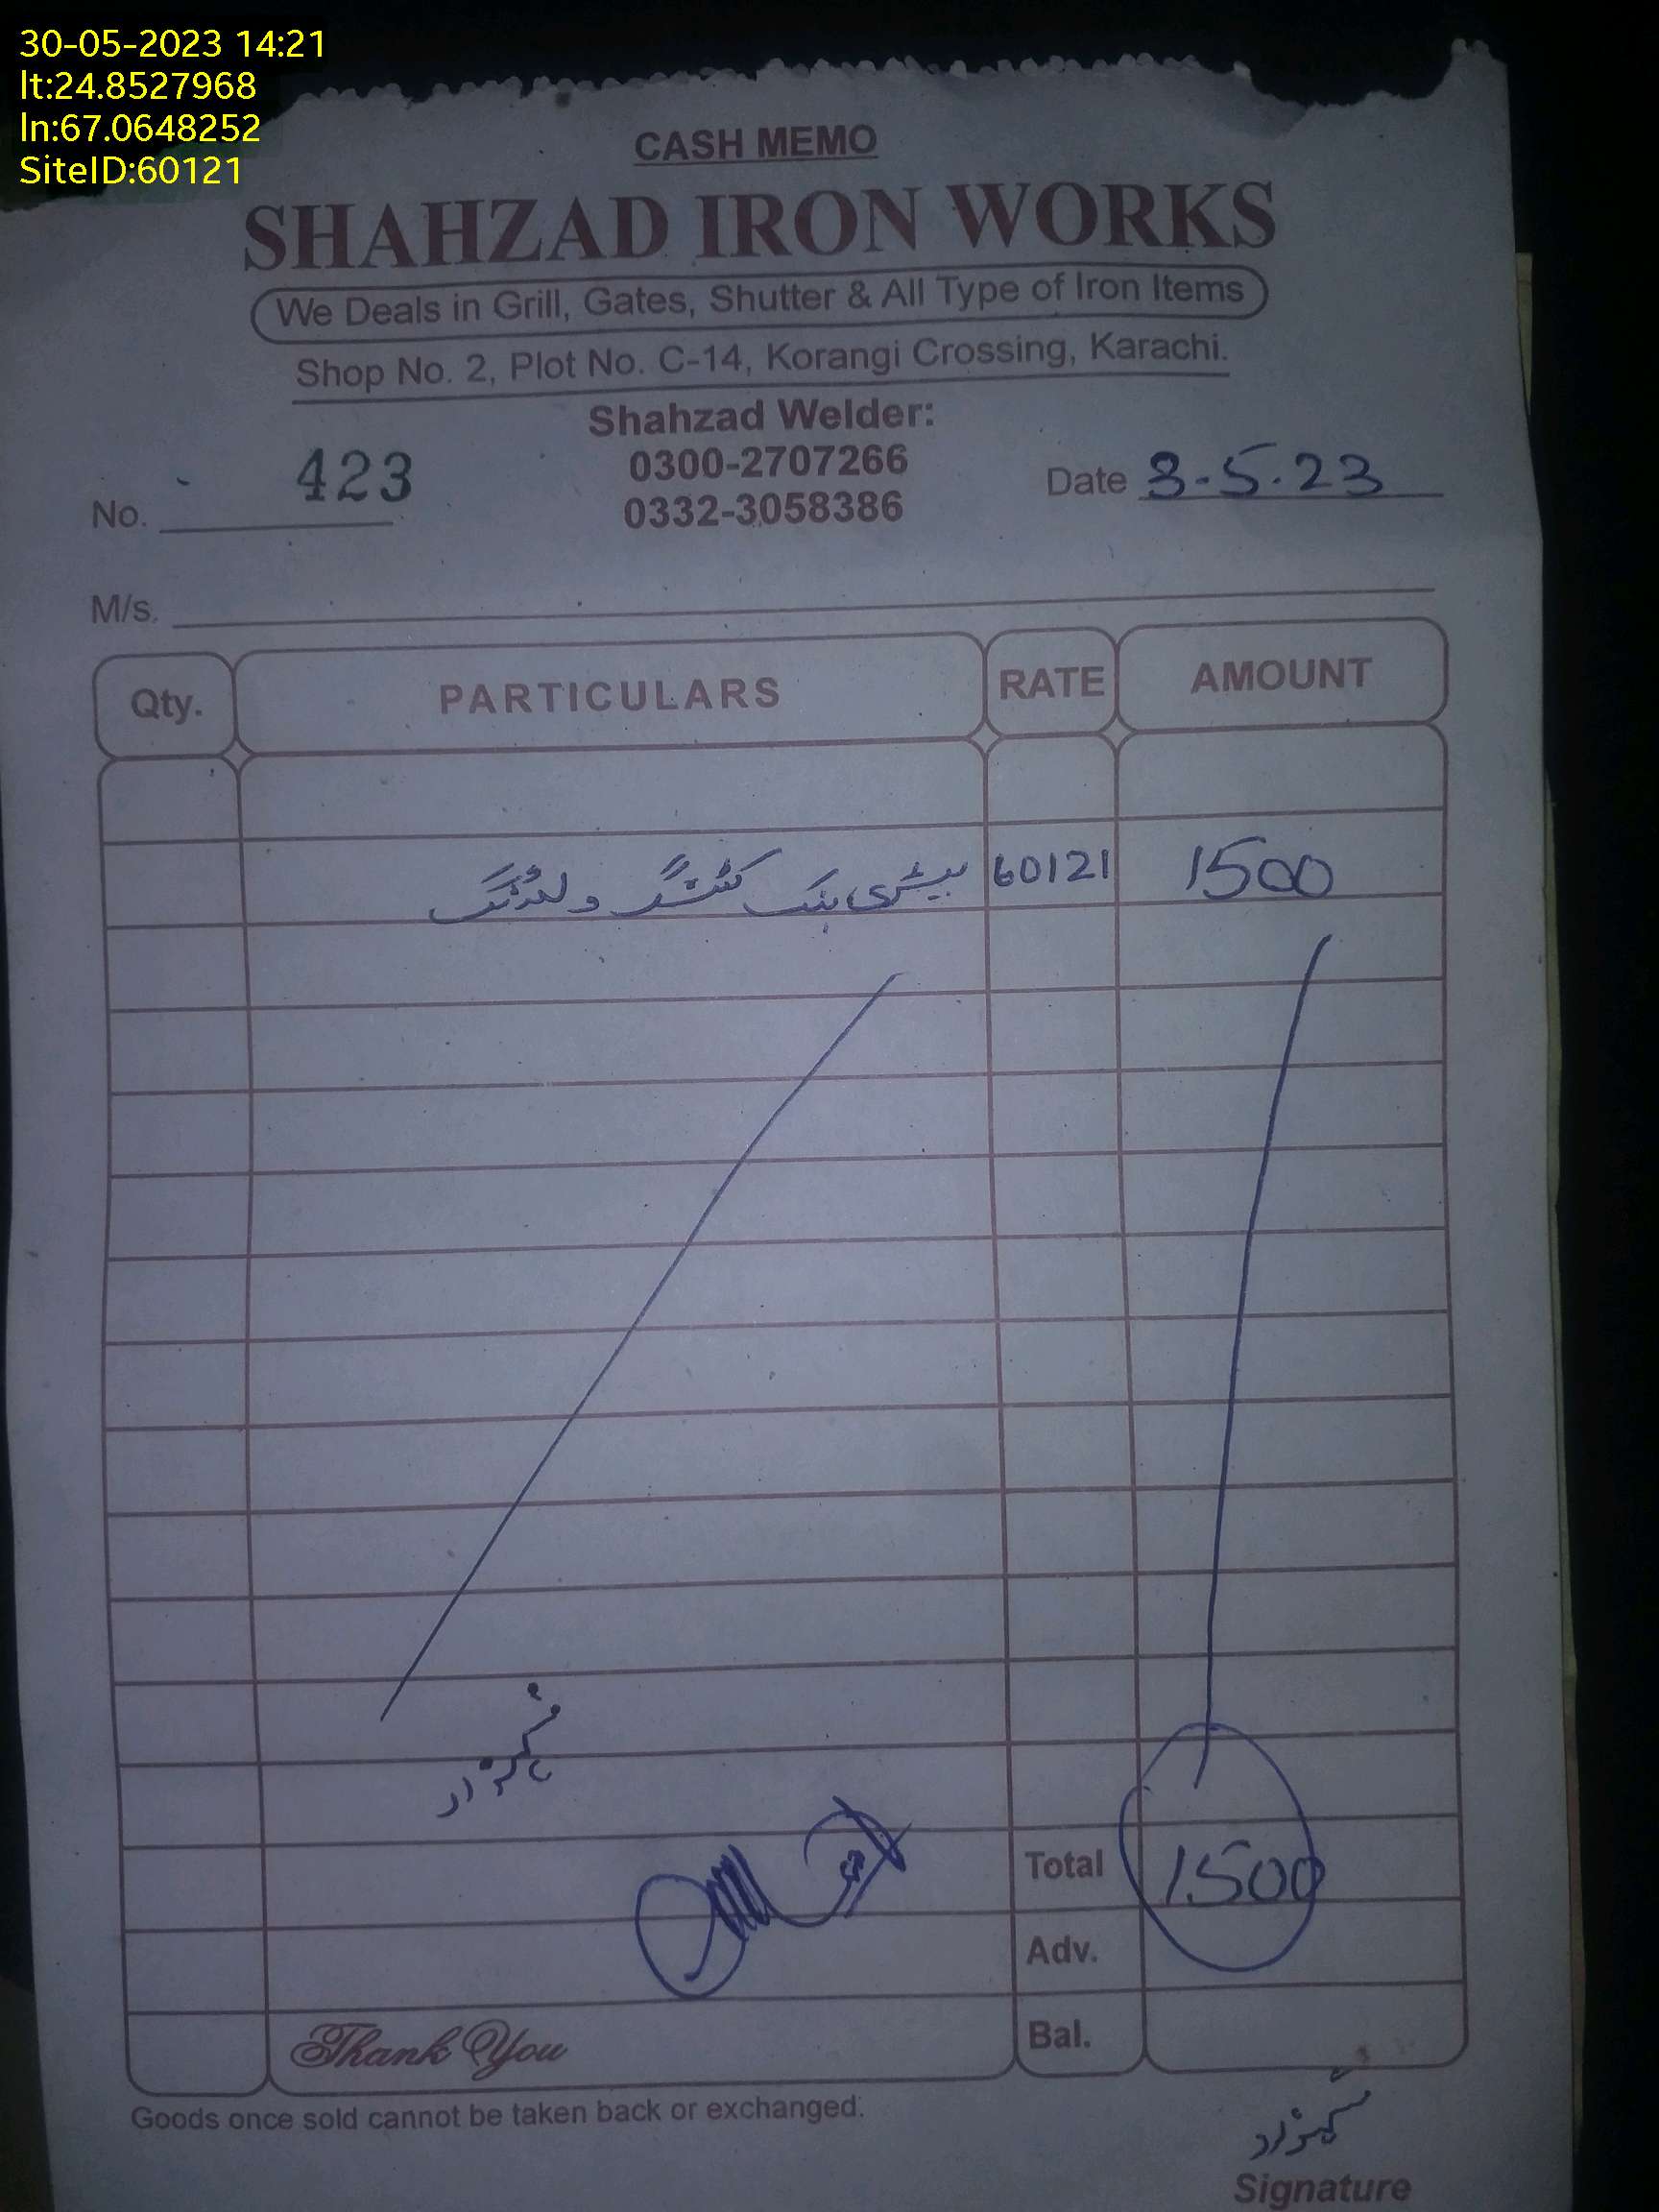 30-05-2023 14:21
lt:24.8527968
ln:67.0648252
SiteID:60121
CASH MEMO
SHAHZAD IRON WORKS
We Deals in Grill, Gates, Shutter & All Type of Iron Items
Shop No. 2, Plot No. C-14, Korangi Crossing, Karachi.
Shahzad Welder:
0300-2707266
0332-3058386
No. 423
Date 3-5-23
M/s.
Qty. PARTICULARS RATE AMOUNT
کٹنگ ولڈنگ 60121 1500
Total 1500
Adv.
Bal.
Thank You
Goods once sold cannot be taken back or exchanged.
Signature